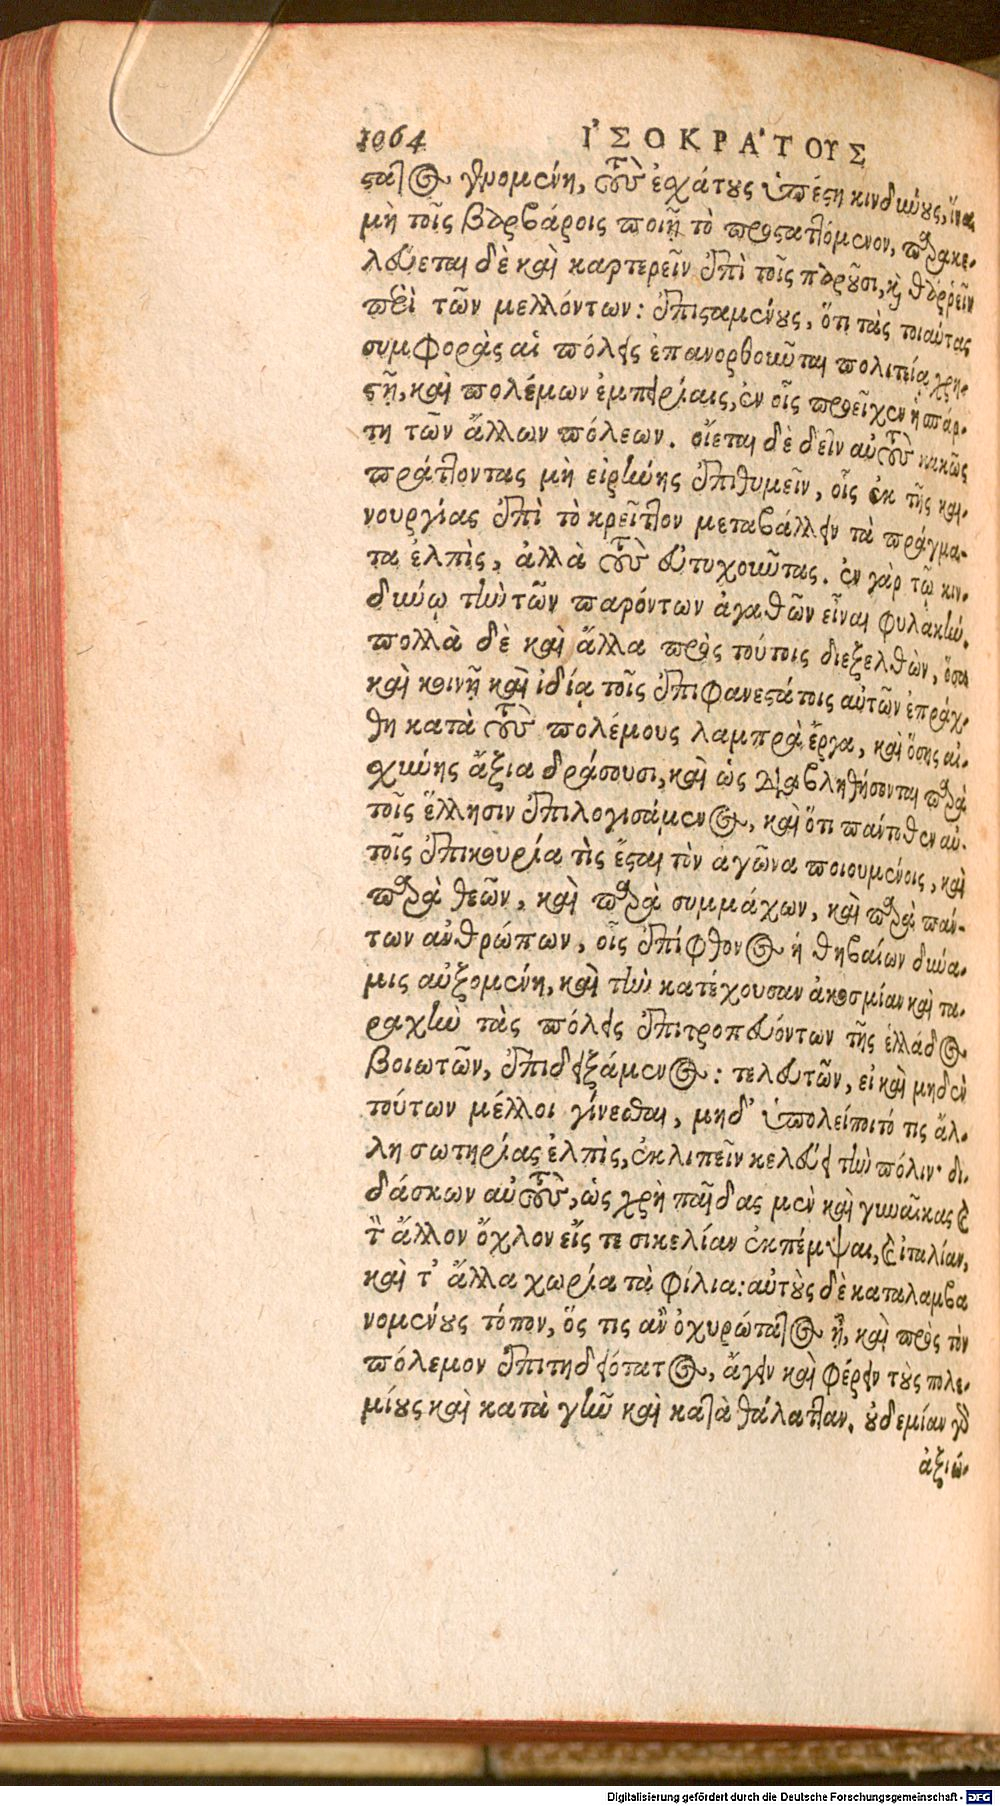 1064 ἸΣΟΚΡΑ΄ΤΟΥΣ
στατος γενομένη, τοὺς ἐσχάτους ὑπέστη κινδύνους, ἵνα
μὴ τοῖς βαρβάροις ποιῇ τὸ προσταττόμενον, παρακε-
λεύεται δὲ καὶ καρτερεῖν ἐπὶ τοῖς παροῦσι, καὶ θαρρεῖν
περὶ τῶν μελλόντων: ἐπισταμένους, ὅτι τὰς τοιαύτας
συμφορὰς αἱ πόλεις ἐπανορθοῦνται πολιτείᾳ χρη-
στῇ, καὶ πολέμων ἐμπειρίαις, ἐν οἷς προεῖχεν ἡ σπάρ-
τη τῶν ἄλλων πόλεων. οἴεται δὲ δεῖν αὐτοὺς κακῶς
πράττοντας μὴ εἰρήνης ἐπιθυμεῖν, οἷς ἐκ τῆς και-
νουργίας ἐπὶ τὸ κρεῖττον μεταβάλλειν τὰ πράγμα-
τα ἐλπὶς, ἀλλὰ τοὺς εὐτυχοῦντας. ἐν γὰρ τῷ κιν-
δύνῳ τὴν τῶν παρόντων ἀγαθῶν εἶναι φυλακήν.
πολλὰ δὲ καὶ ἄλλα πρὸς τούτοις διεξελθὼν, ὅσα
καὶ κοινῇ καὶ ἰδίᾳ τοῖς ἐπιφανεστάτοις αὐτῶν ἐπράχ-
θη κατὰ τοὺς πολέμους λαμπρὰ ἔργα, καὶ ὅσης αἰ-
σχύνης ἄξια δράσουσι, καὶ ὡς διαβληθήσονται παρὰ
τοῖς ἕλλησιν ἐπιλογισάμενος, καὶ ὅτι πανταχόθεν αὐ-
τοῖς ἐπικουρία τὶς ἔσται τὸν ἀγῶνα ποιουμένοις, καὶ
παρὰ θεῶν, καὶ παρὰ συμμάχων, καὶ παρὰ πάν-
των ἀνθρώπων, οἷς ἐπίφθονος ἡ θηβαίων δύνα-
μις αὐξομένη, καὶ τὴν κατέχουσαν ἀκοσμίαν καὶ τα-
ραχὴν τὰς πόλεις ἐπιτροπευόντων τῆς ἑλλάδος
βοιωτῶν, ἐπιδειξάμενος: τελευτῶν, εἰ καὶ μηδὲν
τούτων μέλλοι γίνεσθαι, μηδ’ ὑπολείποιτό τις ἄλ-
λη σωτηρίας ἐλπὶς, ἐκλιπεῖν κελεύει τὴν πόλιν· δι-
δάσκων αὐτοὺς, ὡς χρὴ παῖδας μὲν καὶ γυναῖκας καὶ
τὸν ἄλλον ὄχλον εἴς τε σικελίαν ἐκπέμψαι, καὶ ἰταλίαν,
καὶ τ’ ἄλλα χωρία τὰ φίλια: αὐτοὺς δὲ καταλαμβα
νομένους τόπον, ὅς τις ἂν ὀχυρώτατος ᾖ, καὶ πρὸς τὸν
πόλεμον ἐπιτηδειότατος, ἄγειν καὶ φέρειν τοὺς πολε-
μίους καὶ κατὰ γῆν καὶ κατὰ θάλατταν. οὐδεμίαν γὰρ
ἀξιώ-
Digitalisierung gefördert durch die Deutsche Forschungsgemeinschaft - DFG